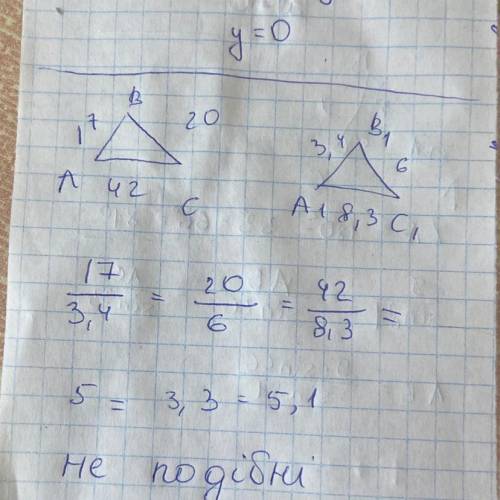 y = 0
B
17 20
A 42 C
B1
3,4 6
A1 8,3 C1
17/3,4 = 20/6 = 42/8,3 =
5 = 3,3 = 5,1
не подібні